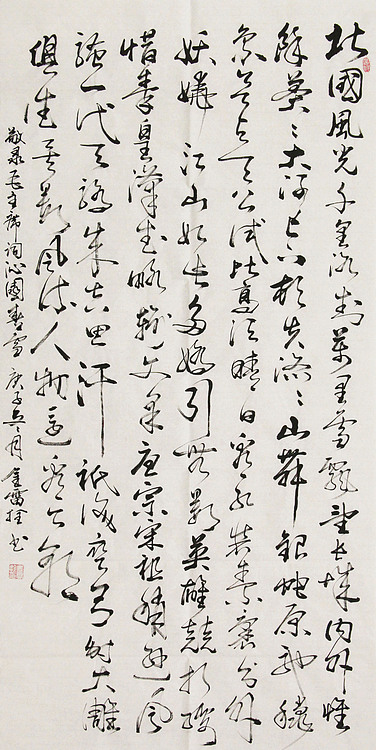 北國風光千里冰封萬里雪飄望長城內外惟
餘莽〻大河上下頓失滔〻山舞銀蛇原馳蠟
象欲與天公試比高須晴日看紅裝素裹分外
妖嬈江山如此多嬌引無數英雄競折腰
惜秦皇漢武略輸文采唐宗宋祖稍遜風
騷一代天驕成吉思汗祇識彎弓射大雕
俱往矣數風流人物還看今朝
敬录毛主席詞沁園春雪庚子月書